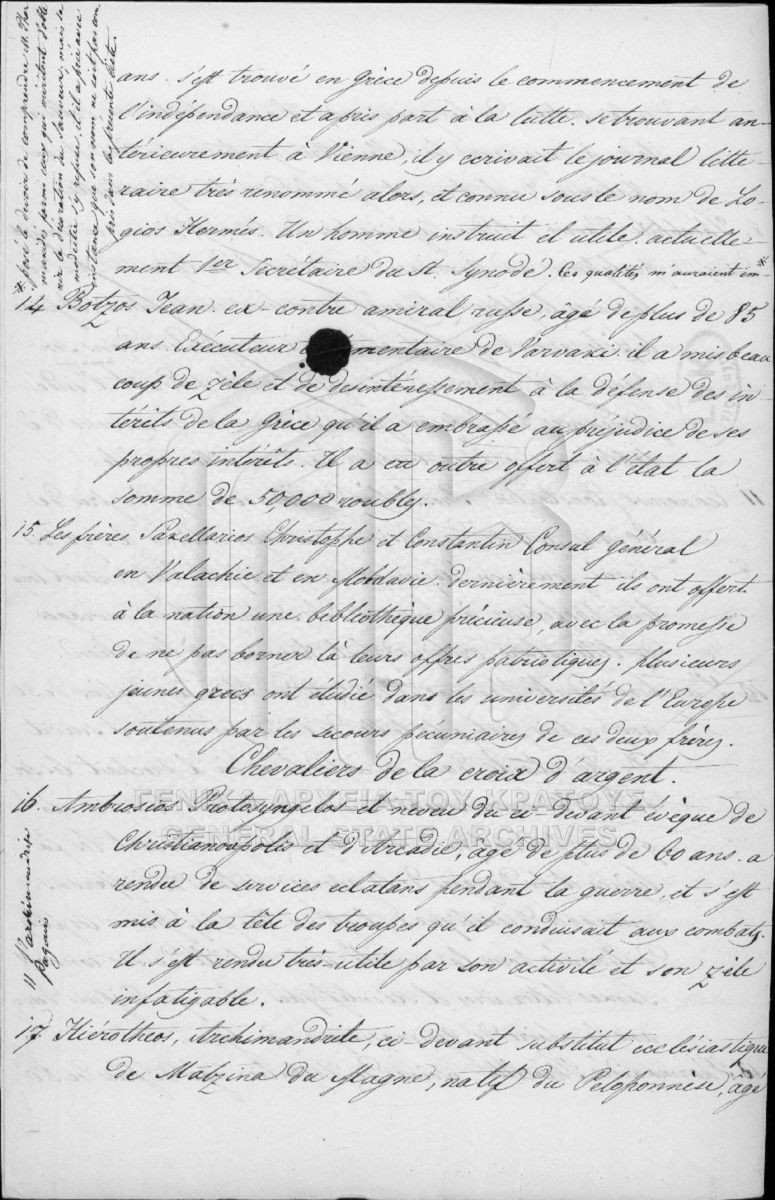 ans. s'est trouvé en Grèce depuis le commencement de
l'indépendance et a pris part à la lutte. se trouvant an-
térieurement à Vienne, il y ecrivait le journal litte-
raire très renommé alors, et connu sous le nom de Lo-
gios Hermés. Un homme instruit et utile. actuelle-
ment 1er Secrétaire du St. Synode. Ces qualités m'auraient im-*
* posé le devoir de comprendre M. Phar
mandès parmi ceux qui méritent d'obte
nir la décoration du Sauveur, mais la
modestie s'y refuse, et il a prié avec
instance que son nom ne soit pas com
pris dans la présente liste.
14 Botzos Jean. ex-contre amiral russe, âgé de plus de 85
ans. Exécuteur mentaire de Varvaxi. il a mis beau
coup de zèle et de desintéressement à la défense des in-
térêts de la Grèce qu'il a embrassé au préjudice de ses
propres intérêts. Il a en outre offert à l'état la
somme de 50,000 roubles.
15 Les frères Saxellarios Christophe et Constantin Consul général
en Valachie et en Moldavie. dernièrement ils ont offert
à la nation une bibliothèque précieuse, avec la promesse
de ne pas borner là leurs offres patriotiques. plusieurs
jeunes grecs ont étudié dans les universités de l'Europe
soutenus par les secours pécuniaires de ces deux frères.
Chevaliers de la croix d'argent.
16. Ambrosios Protosyngelos et neveu du ci-devant évêque de
Christianoupolis et d'Arcadie, âgé de plus de 60 ans. a
rendu de services eclatans pendant la guerre, et s'est
mis à la tête des troupes qu'il conduisait aux combats.
Il s'est rendu très-utile par son activité et son zèle
infatigable.
" l'archimandrite
17. Hiérotheos, Archimandrite, ci-devant substitut ecclésiastique
de Matzina du Magne, natif du Peloponnèse, âgé
ΓΕΝΙΚΑ ΑΡΧΕΙΑ ΤΟΥ ΚΡΑΤΟΥΣ
GENERAL STATE ARCHIVES